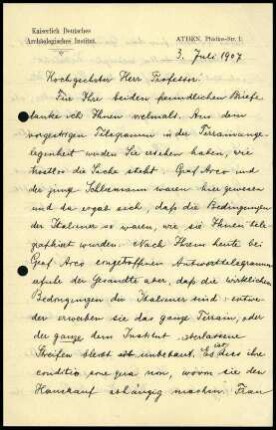 Kaiserlich Deutsches
Archäologisches Institut.
ATHEN, Phidias-Str. 1.
3. Juli 1907
Hochgeehrter Herr Professor!
Für Ihre beiden freundlichen Briefe
danke ich Ihnen vielmals. Aus dem
vorgestrigen Telegramm in der Terrainange-
legenheit werden Sie ersehen haben, wie
trostlos die Sache steht. Graf Arco und
der junge Schliemann waren hier gewesen
und da ergab sich, daß die Bedingungen
der Italiener so waren, wie sie Ihnen tele-
graphiert wurden. Nach Ihrem heute bei
Graf Arco eingetroffnen Antworttelegramm
erfuhr der Gesandte aber, daß die wirklichen
Bedingungen der Italiener sind: entwe-
der erwerben sie das ganze Terrain, oder
der ganze dem Institut überlassene
Streifen bleibt unbebaut. Es ist dies ihre
conditio sine qua non, wovon sie den
Hauskauf abhängig machen. Frau